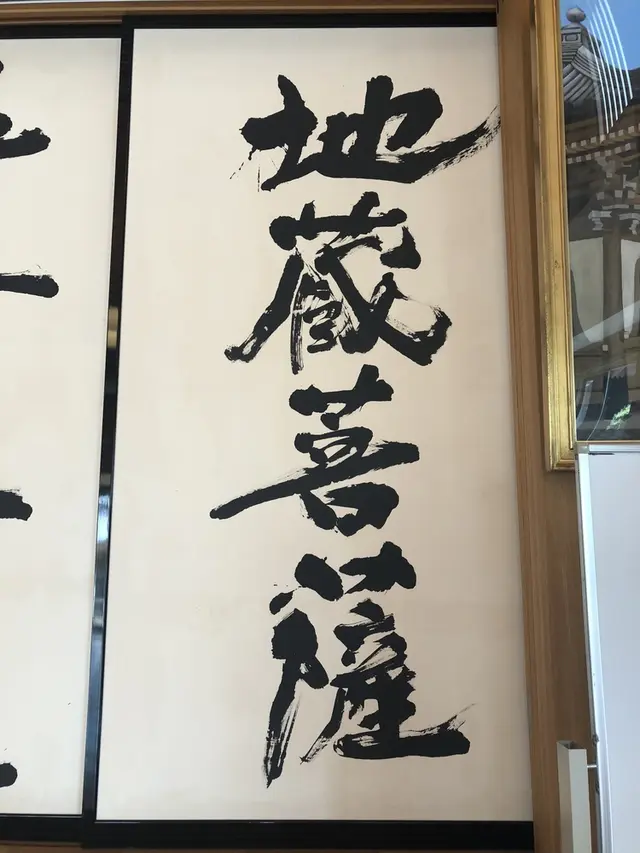 地蔵菩薩